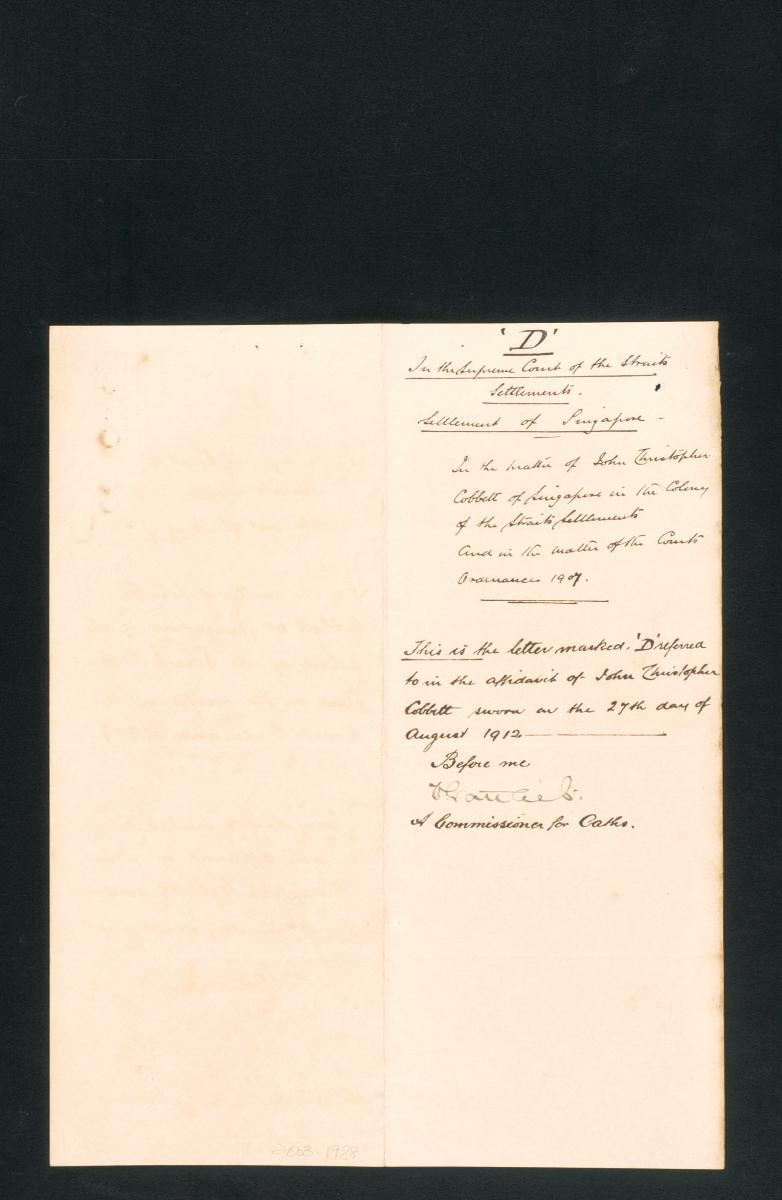 'D'
In the Supreme Court of the Straits
Settlements.
Settlement of Singapore -
In the matter of John Christopher
Cobbett of Singapore in the Colony
of the Straits Settlements
And in the matter of the Courts
Ordinances 1907.
This is the letter marked 'D' referred
to in the affidavit of John Christopher
Cobbett sworn on the 27th day of
August 1912
Before me
A Commissioner for Oaths.
2003-1988